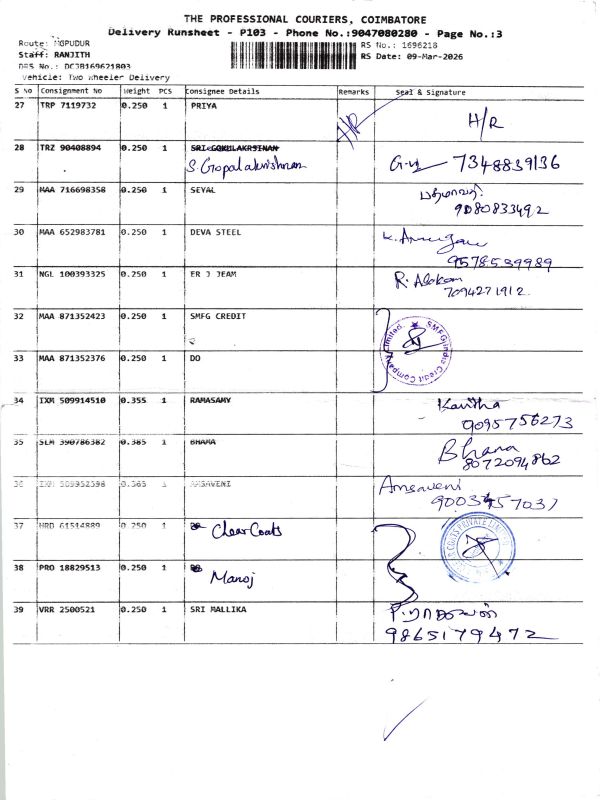 THE PROFESSIONAL COURIERS, COIMBATORE
Delivery Runsheet - P103 - Phone No.:9047080280 - Page No.:3
Route: MGPUDUR
Staff: RANJITH
DRS No.: DCJB169621803
Vehicle: Two Wheeler Delivery
RS No.: 1696218
RS Date: 09-Mar-2026
S No Consignment No Weight PCS Consignee Details Remarks Seal & Signature
27 TRP 7119732 0.250 1 PRIYA H/R H/R
28 TRZ 90408894 0.250 1 SRI GOKULAKRISHNAN
S. Gopalakrishnan 7348839136
29 MAA 716698358 0.250 1 SEYAL
9080833492
30 MAA 652983781 0.250 1 DEVA STEEL
9578539989
31 NGL 100393325 0.250 1 ER J JEAM R. Alokam
7094271912
32 MAA 871352423 0.250 1 SMFG CREDIT
SMFG India Credit Company Limited
33 MAA 871352376 0.250 1 DO
34 IXM 509914510 0.355 1 RAMASAMY Kavitha
9095756273
35 SLM 390786382 0.385 1 BHAMA Bhama
8072094862
36 IXM 509952598 0.365 1 AMSAVENI Amsaveni
37 HRD 61514889 0.250 1 Clear Coats
COATS PRIVATE LIMITED
38 PRO 18829513 0.250 1 Manoj
39 VRR 2500521 0.250 1 SRI MALLIKA
9865179472